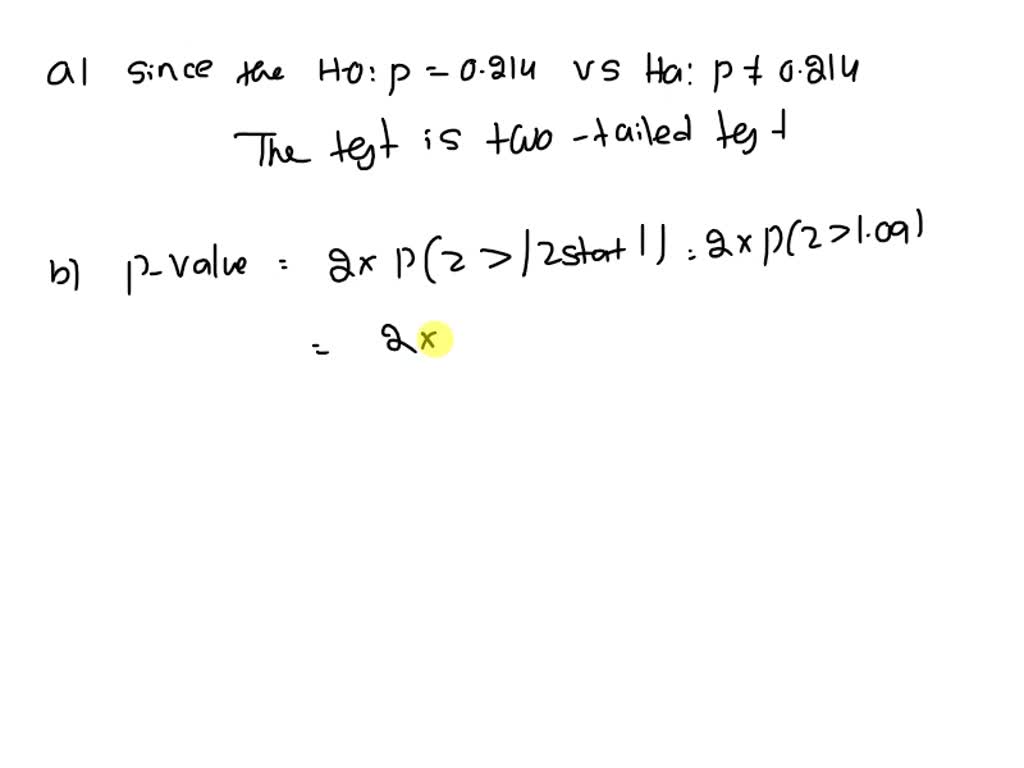 a) since the Ho: p = 0.214 vs Ha: p ≠ 0.214
The test is two-tailed test
b) p-value = 2x p(z > |zstat|) = 2x p(z > 1.09)
= 2x